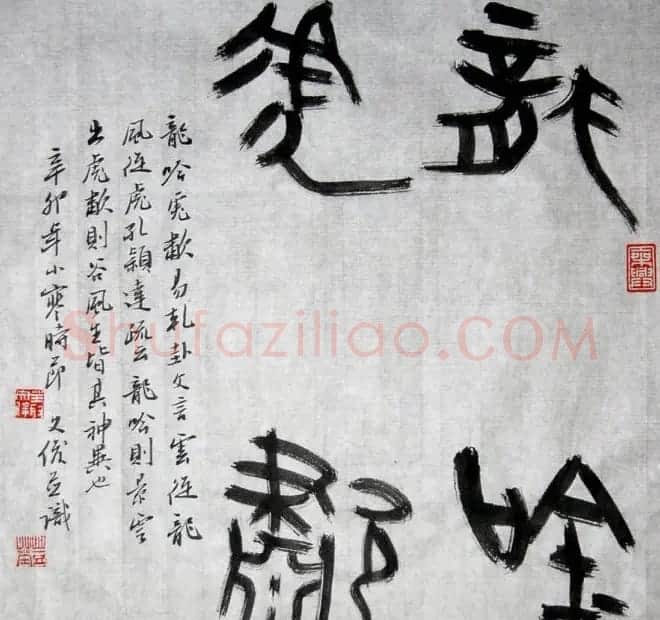 龍吟
虎歗
龍吟虎歗易乾卦文言雲從龍
風從虎孔穎達疏云龍吟則景雲
出虎歗則谷風生皆其神異也
辛卯年小寒時節 文俊並識
Shufaziliao.COM